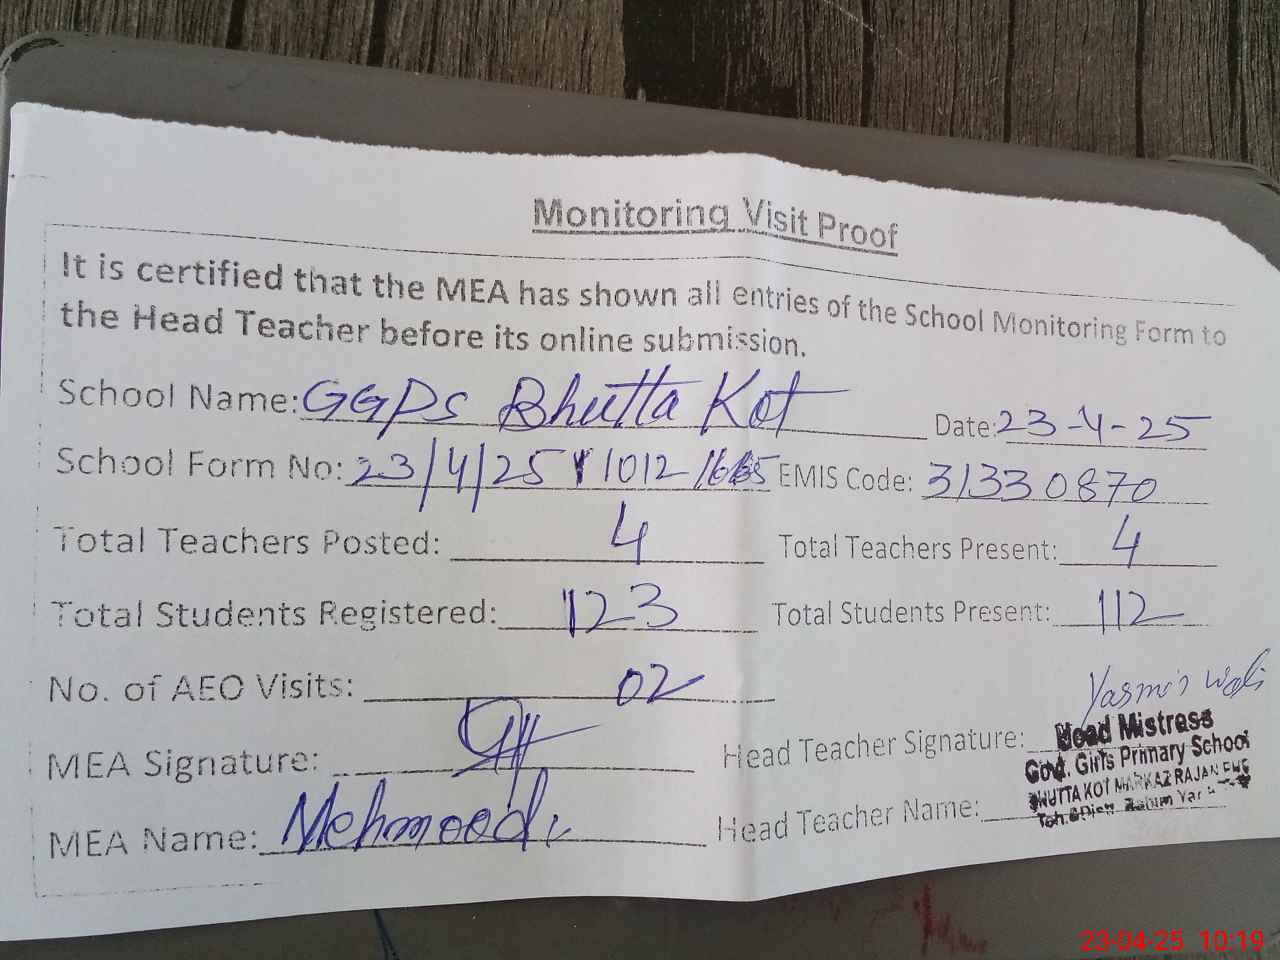 Monitoring Visit Proof
It is certified that the MEA has shown all entries of the School Monitoring Form to
the Head Teacher before its online submission.
School Name: GGPS Bhutta Kot Date: 23-4-25
School Form No: 23/4/25 1012 EMIS Code: 31330870
Total Teachers Posted: 4 Total Teachers Present: 4
Total Students Registered: 123 Total Students Present: 112
No. of AEO Visits: 02
Yasmin
MEA Signature: Head Teacher Signature:
Head Mistress
Govt. Girls Primary School
BHUTTA KOT MARKAZ RAJAN PUR
Teh. & Distt. Rahim Yar
MEA Name: Mehmood Head Teacher Name:
23-04-25 10:19